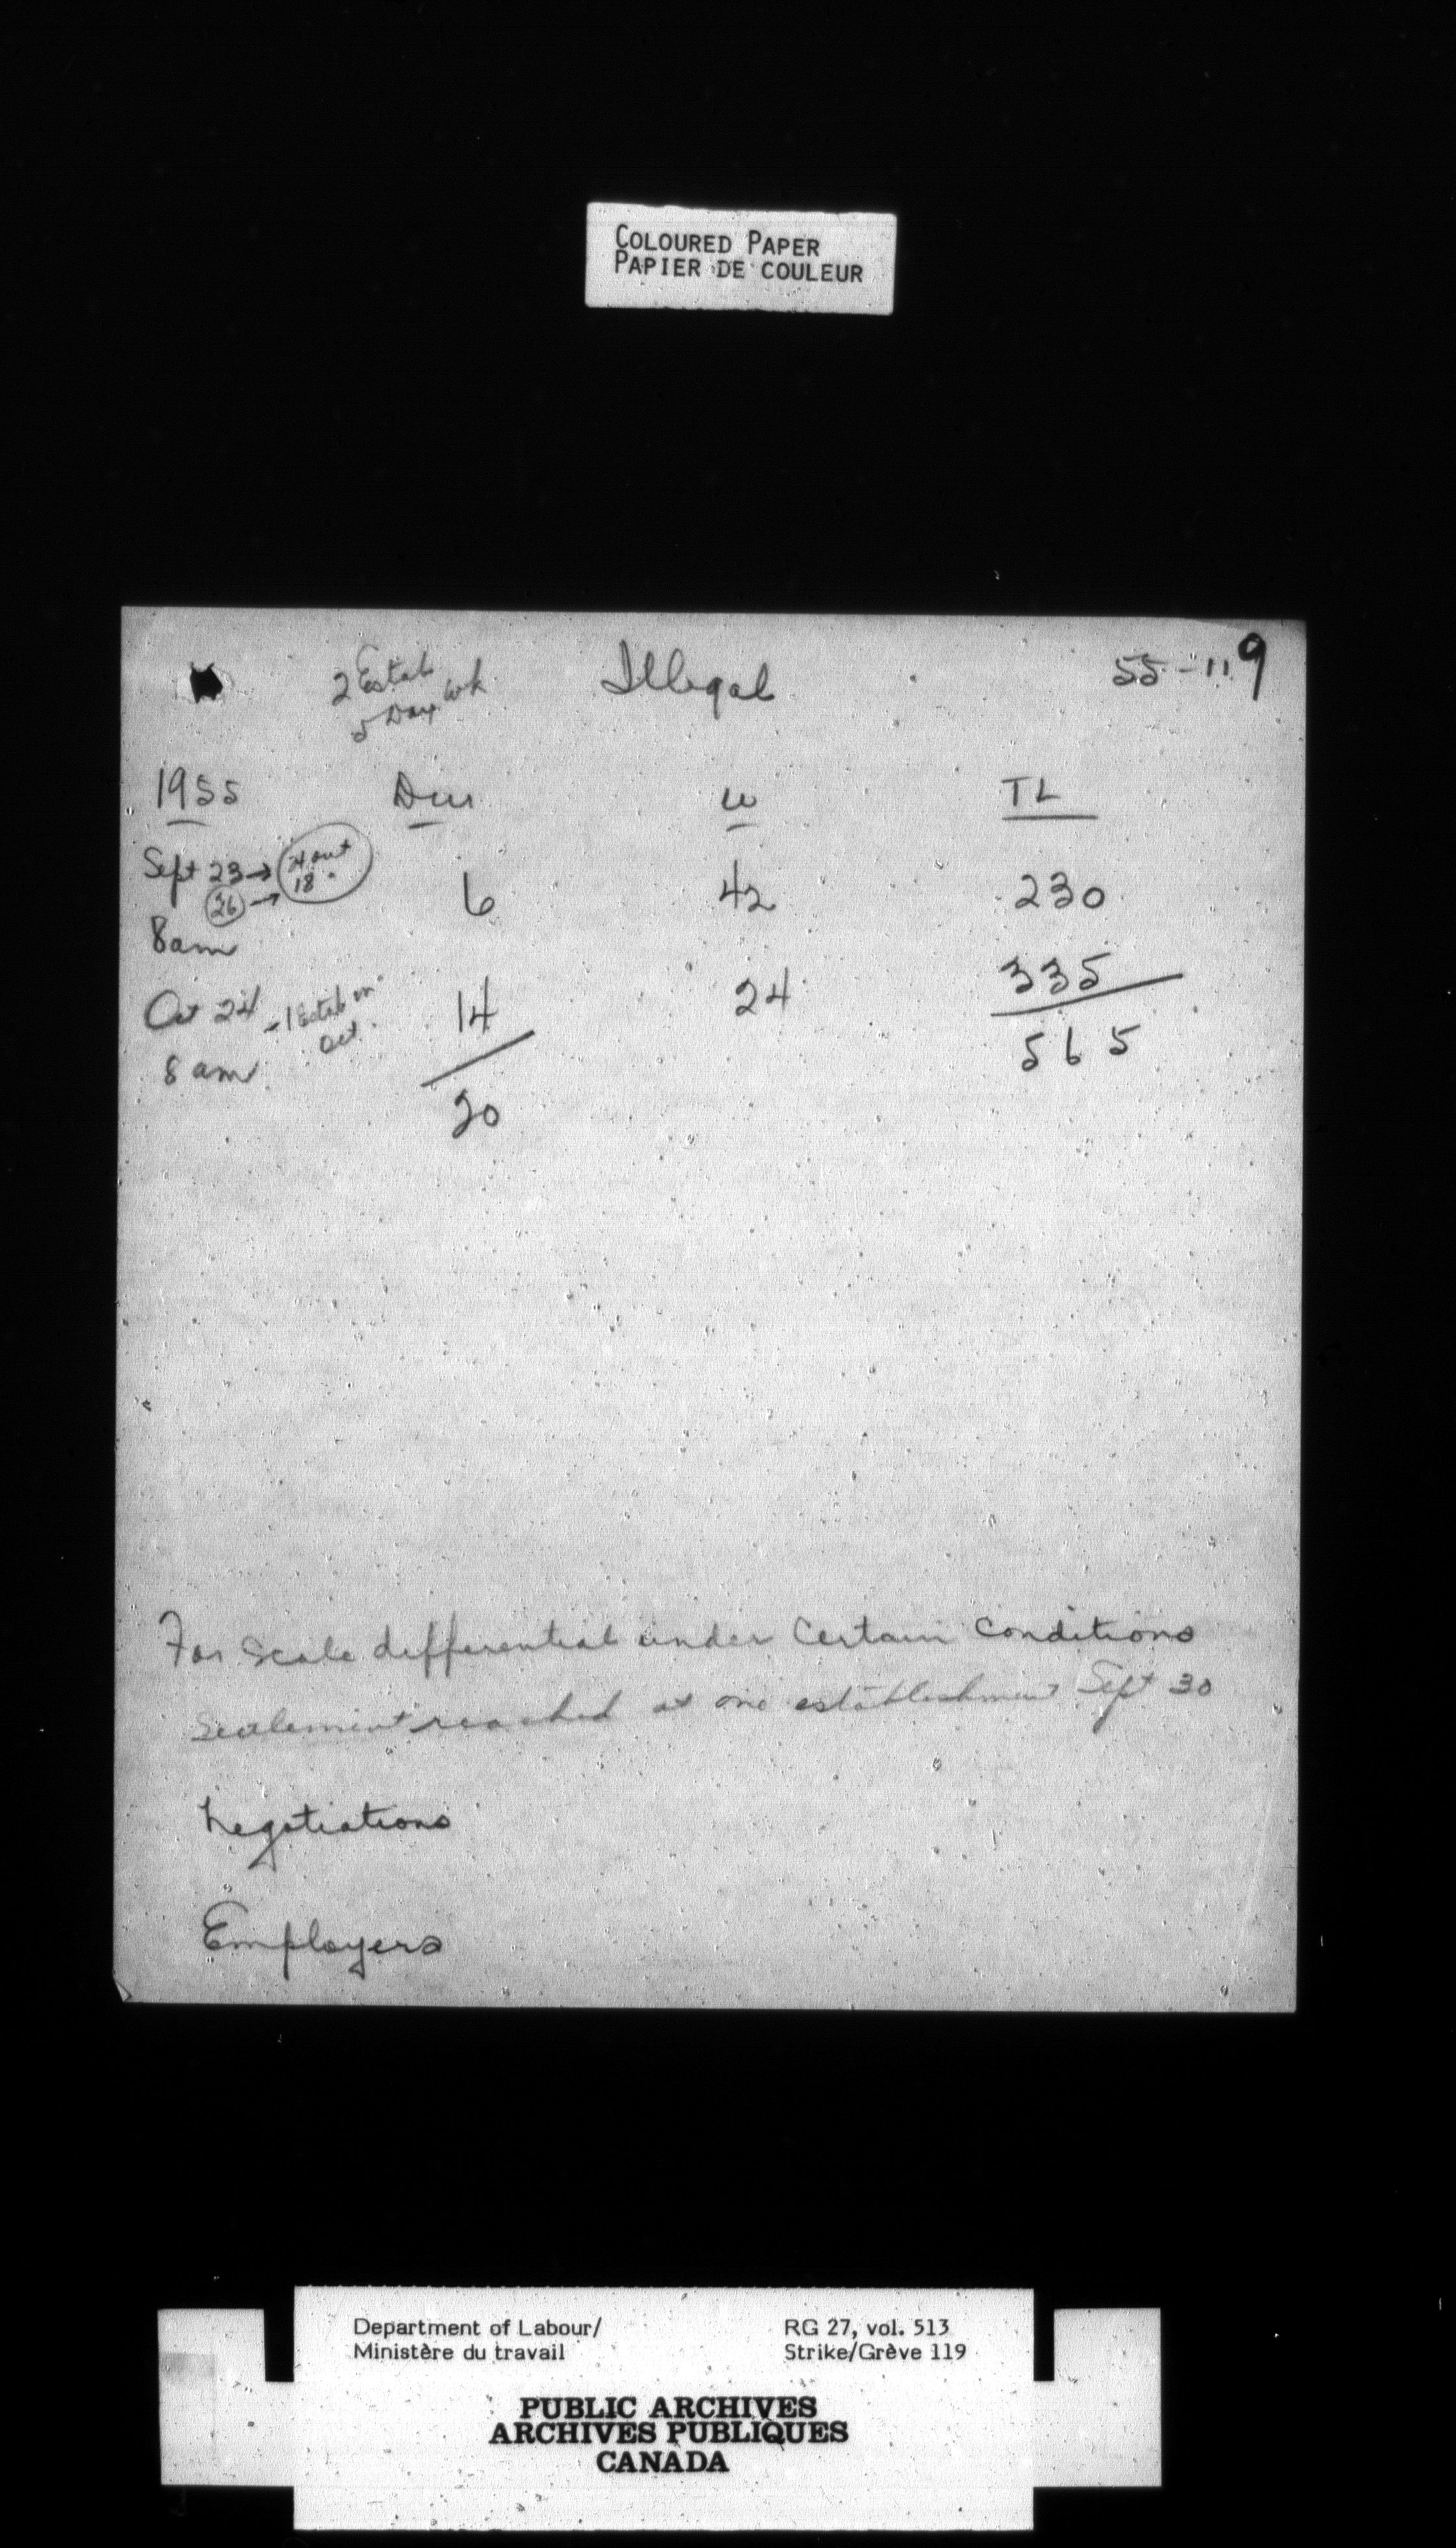 COLOURED PAPER
PAPIER DE COULEUR
2 Estab
5 Day wk
Illegal
55-119
1955 Dur W TL
Sept 23 → 24 out
26 → 18 "
8 am
6 42 230
Oct 24 - 1 Estab in
Oct
8 am
14 24 335
20 565
For Scale differential under Certain Conditions
Settlement reached at one establishment Sept 30
Negotiations
Employers
Department of Labour/
Ministère du travail
RG 27, vol. 513
Strike/Grève 119
PUBLIC ARCHIVES
ARCHIVES PUBLIQUES
CANADA